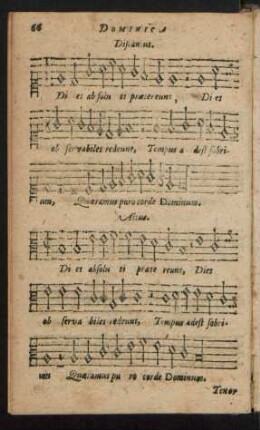 66 DOMINICA
Discantus.
Di es absolu ti prætereunt, Di es
ob servabiles redeunt, Tempus a dest sobri-
um, Quæramus puro corde Dominum.
Altus.
Di es absolu ti præte reunt, Dies
ob serva biles redeunt, Tempus adest sobri-
um Quæramus pu ro corde Dominum.
Tenor